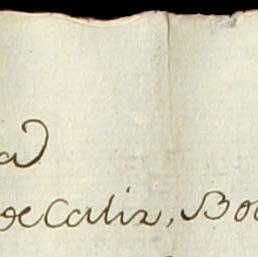 a
de Caliz, Bo